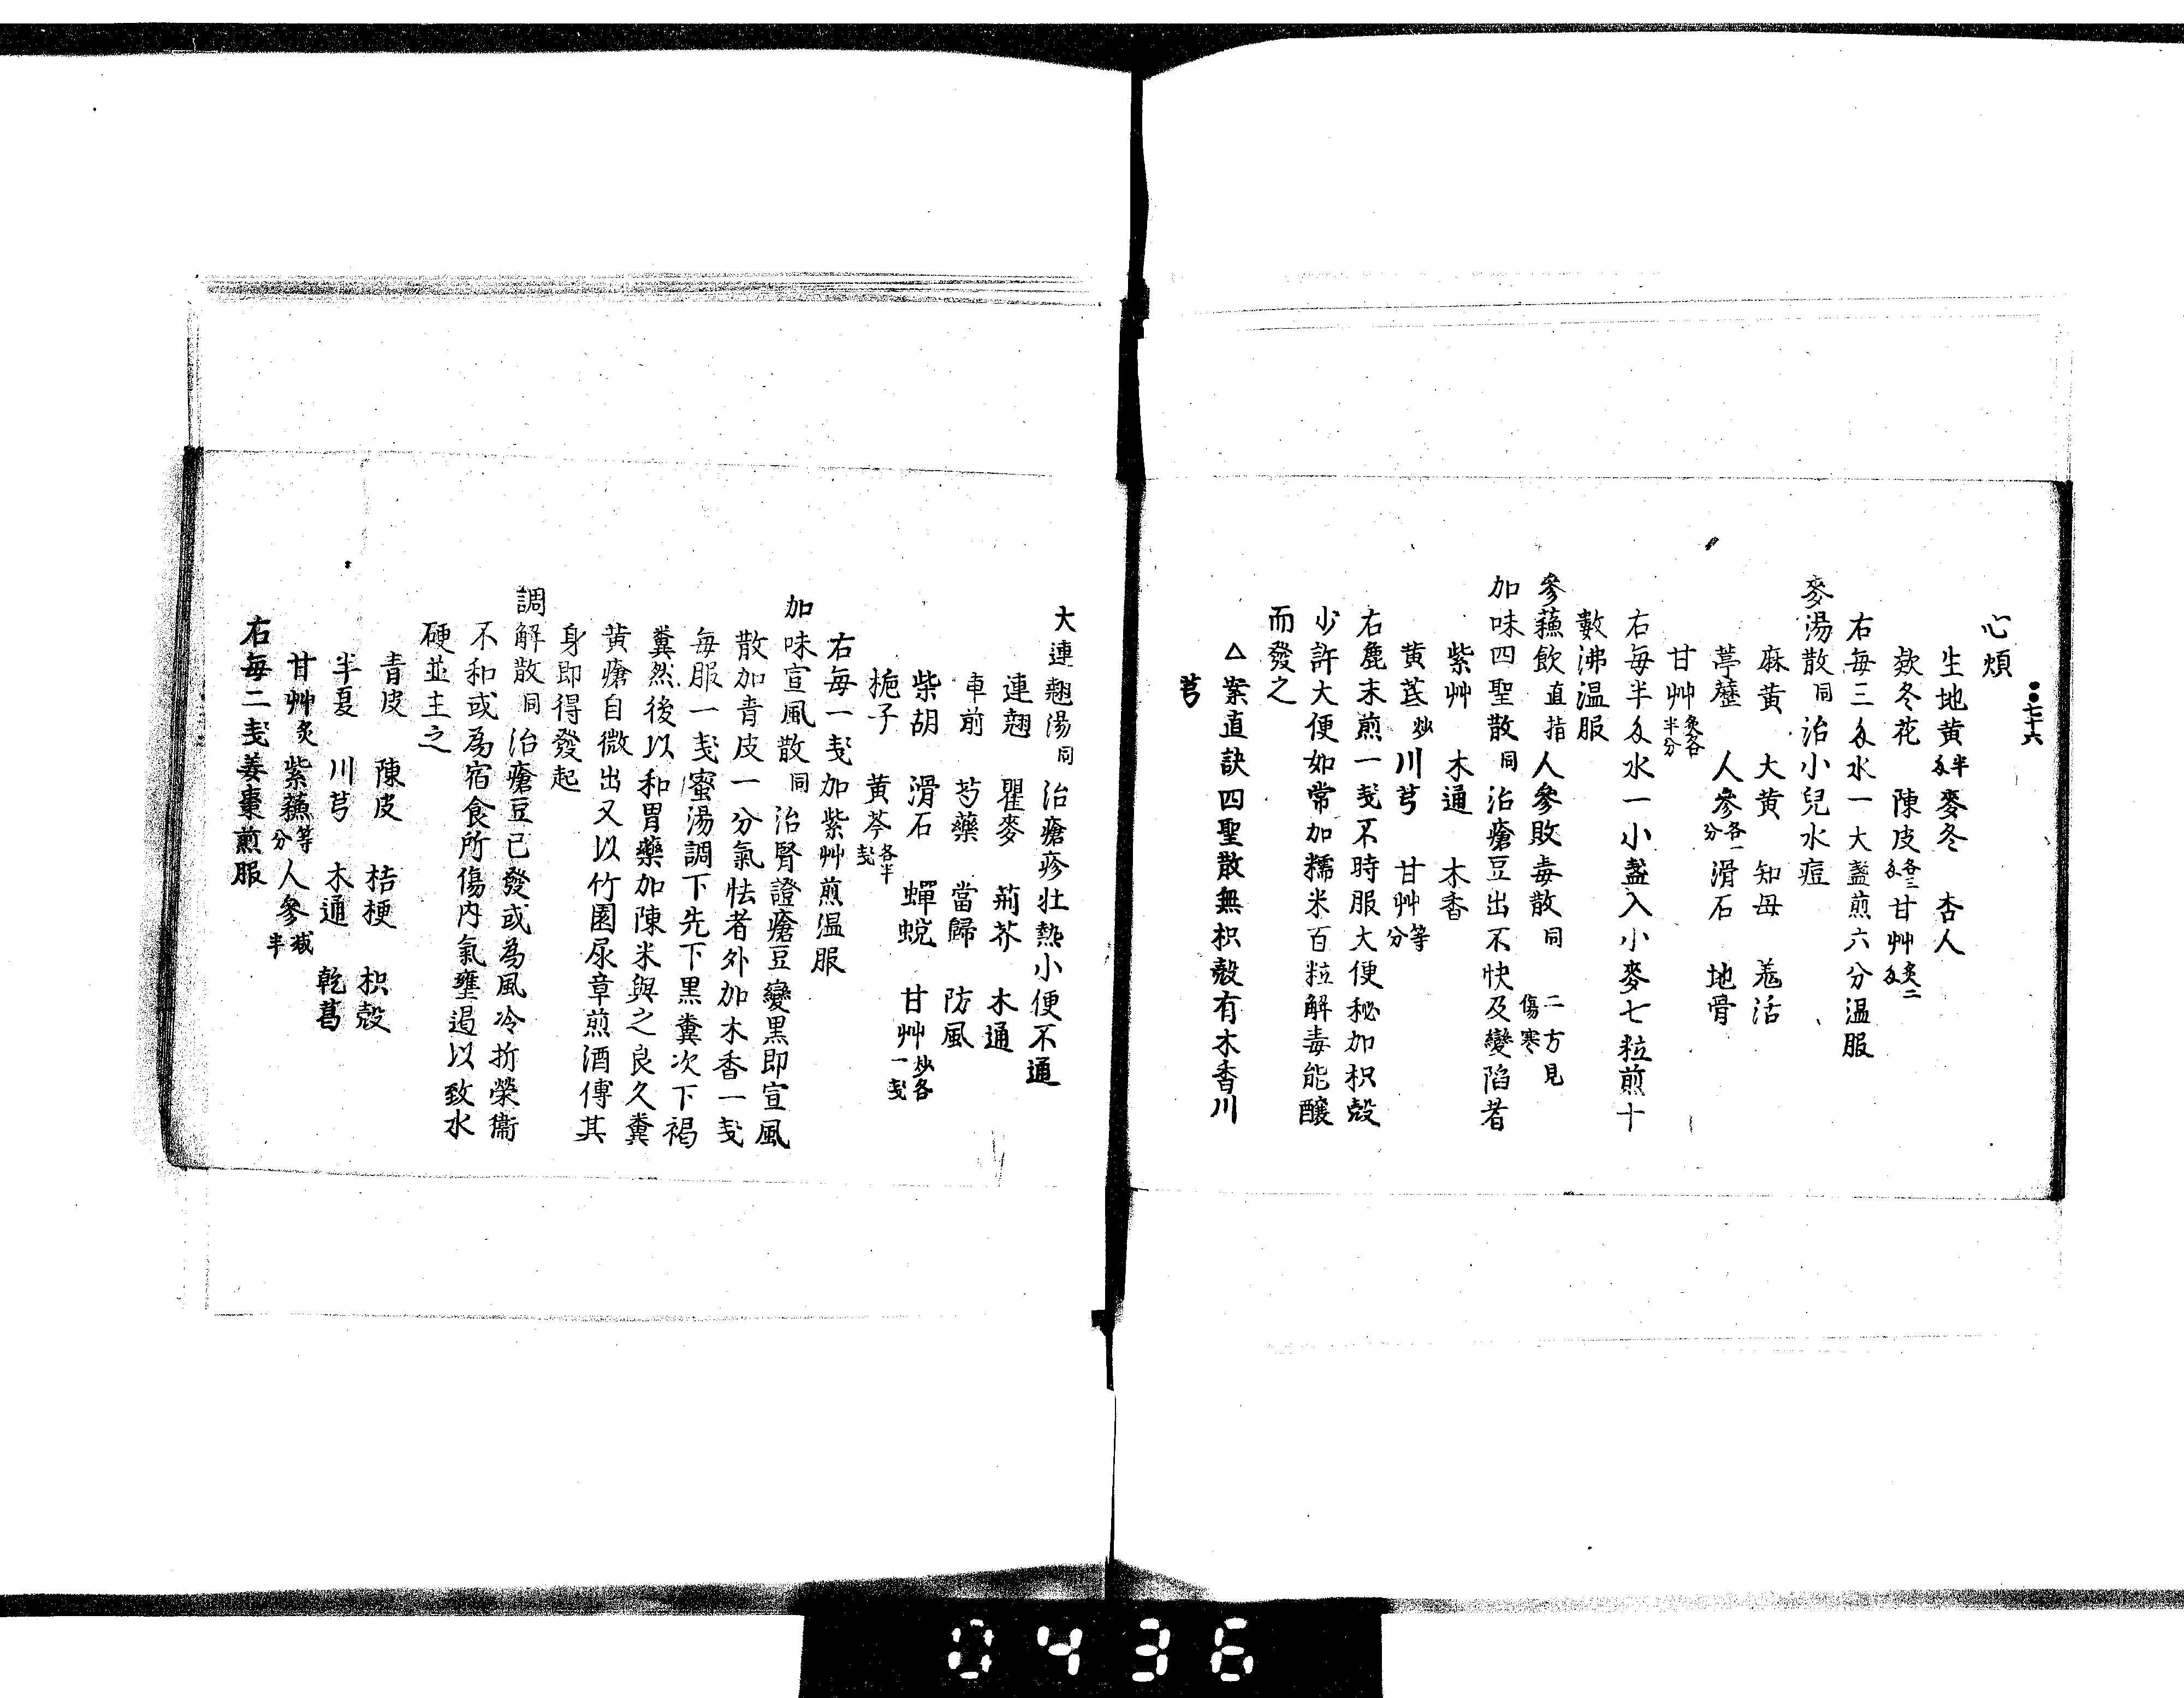 七十六
心煩
生地黄半戔 麥冬 杏人
欵冬花 陳皮各三戔 甘艸炙二戔
右毎三戔水一大盞煎六分温服
麥湯散同 治小兒水痘
麻黄 大黄 知母 羗活
葶藶 人參各一分 滑石 地骨
甘艸炙各半分
右毎半戔水一小盞入小麥七粒煎十
數沸温服
參蘓飲直指 人參敗毒散同 二方見傷寒
加味四聖散同 治瘡豆出不快及變陷者
紫艸 木通 木香
黄芪炒 川芎 甘艸等分
右麁末煎一戔不時服大便秘加枳殻
少許大便如常加糯米百粒解毒能釀
而發之
△案直訣四聖散無枳殻有木香川
芎
大連翹湯同 治瘡疹壮熱小便不通
連翹 瞿麥 荊芥 木通
車前 芍藥 當歸 防風
柴胡 滑石 蟬蛻 甘艸炒各一戔
梔子 黄芩各半戔
右毎一戔加紫艸煎温服
加味宣風散同 治腎證瘡豆變黒即宣風
散加青皮一分氣怯者外加木香一戔
毎服一戔蜜湯調下先下黒糞次下褐
糞然後以和胃藥加陳米與之良久糞
黄瘡自微出又以竹園荽章煎酒傅其
身即得發起
調解散同 治瘡豆已發或為風冷折榮衞
不和或為宿食所傷内氣壅遏以致水
硬並主之
青皮 陳皮 桔梗 枳殻
半夏 川芎 木通 乾葛
甘艸炙 紫蘓等分 人參減半
右毎二戔姜棗煎服
0436